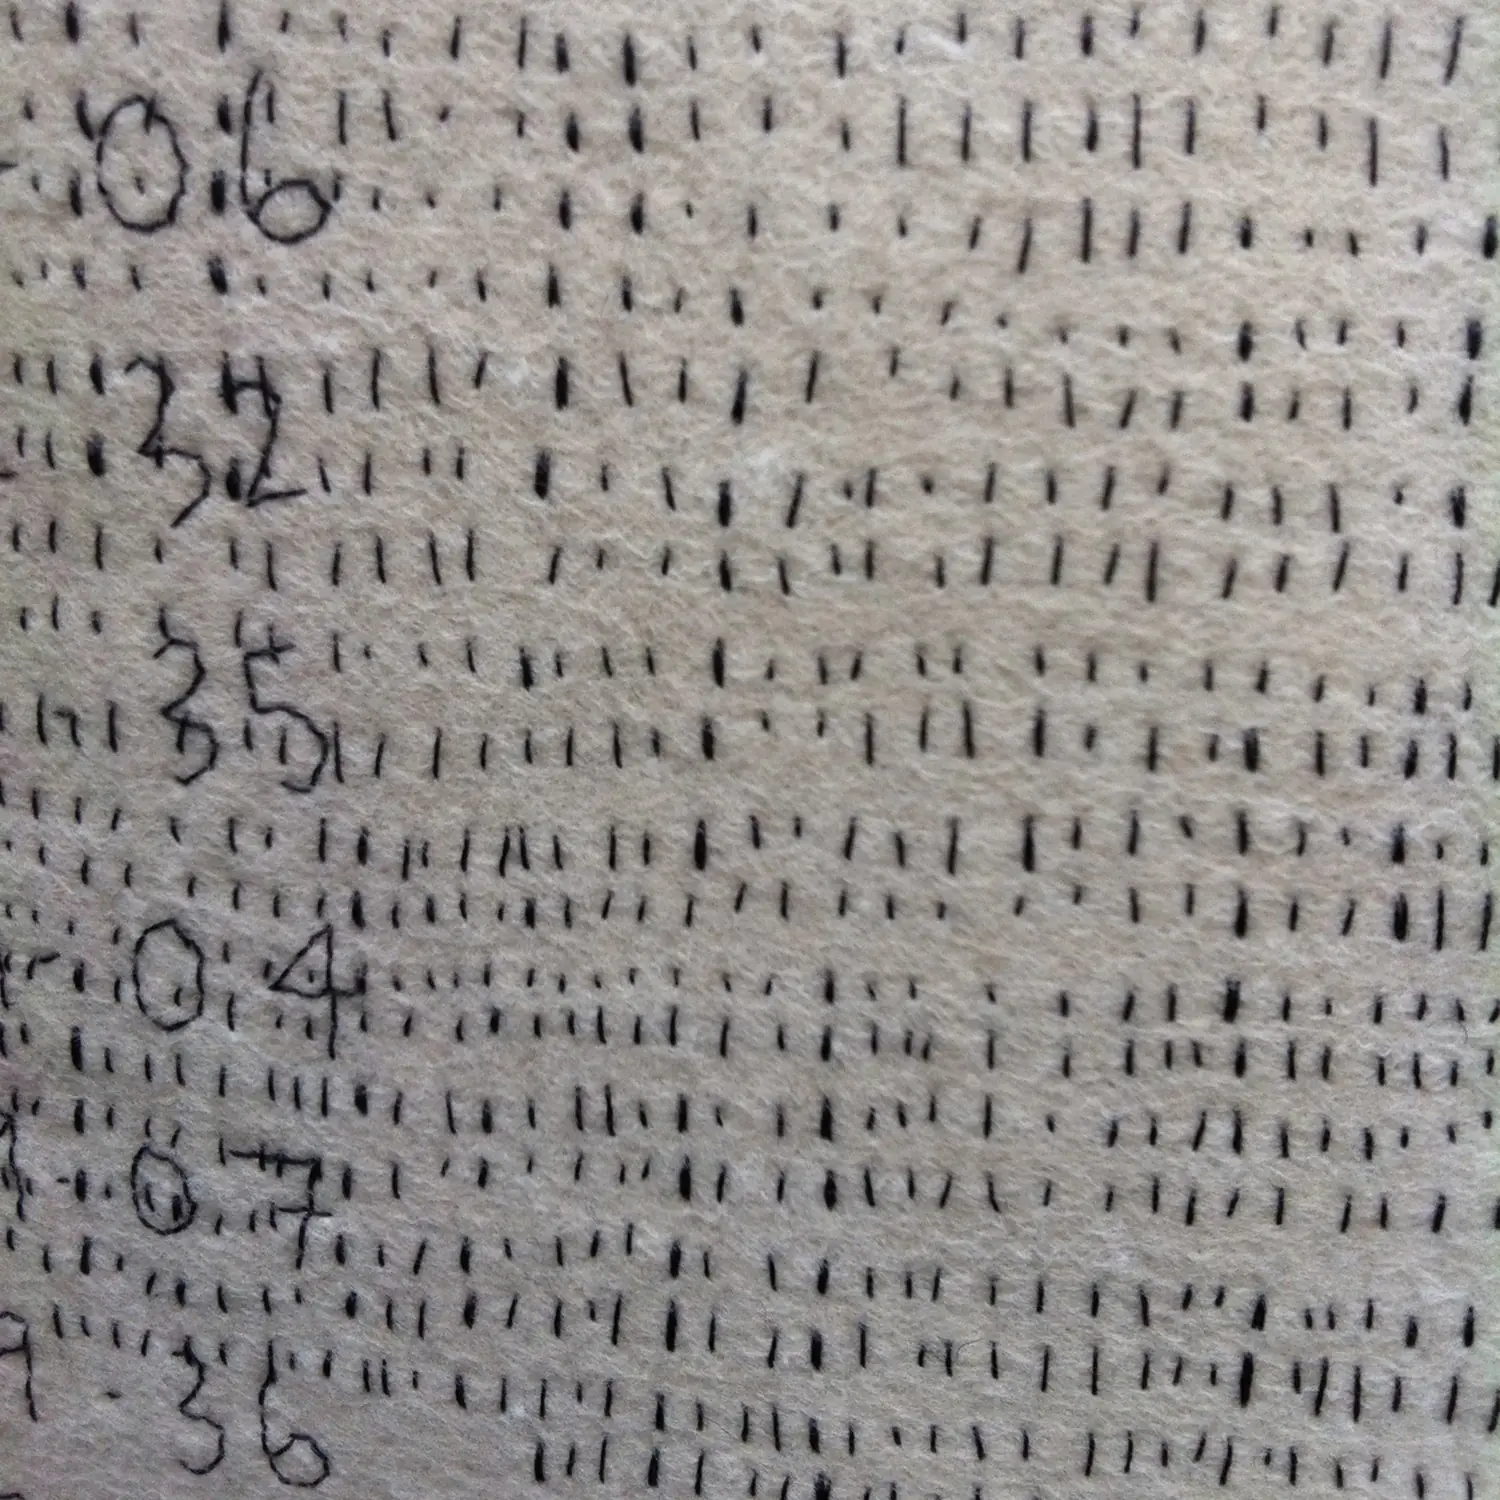 06
32
35
04
07
36